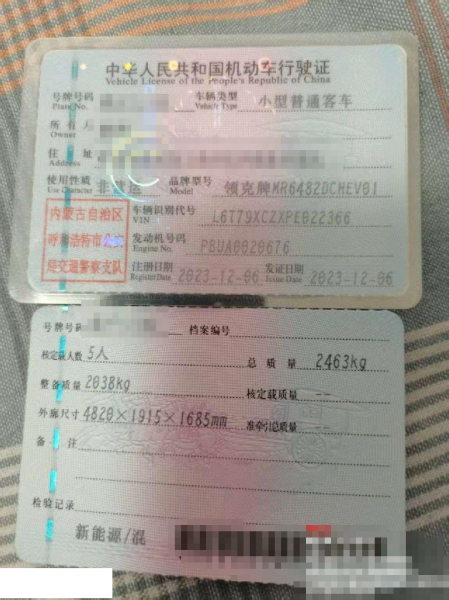 中华人民共和国机动车行驶证
Vehicle License of the People's Republic of China
号牌号码 车辆类型 小型普通客车
Plate No. Vehicle Type
所有人
Owner
住址
使用性质 非营运 品牌型号 领克牌MR6482DCHEV01
Use Character
内蒙古自治区 车辆识别代号 L6T79XCZXPE022366
VIN
呼和浩特市公安 发动机号码 PBUA0020676
Engine No.
局交通警察支队 注册日期 2023-12-06 发证日期 2023-12-06
Register Date Issue Date
号牌号码 档案编号
核定载人数 5人 总质量 2463kg
整备质量 2038kg 核定载质量 --
外廓尺寸 4820×1915×1685mm 准牵引总质量 --
备注
检验记录
新能源/混